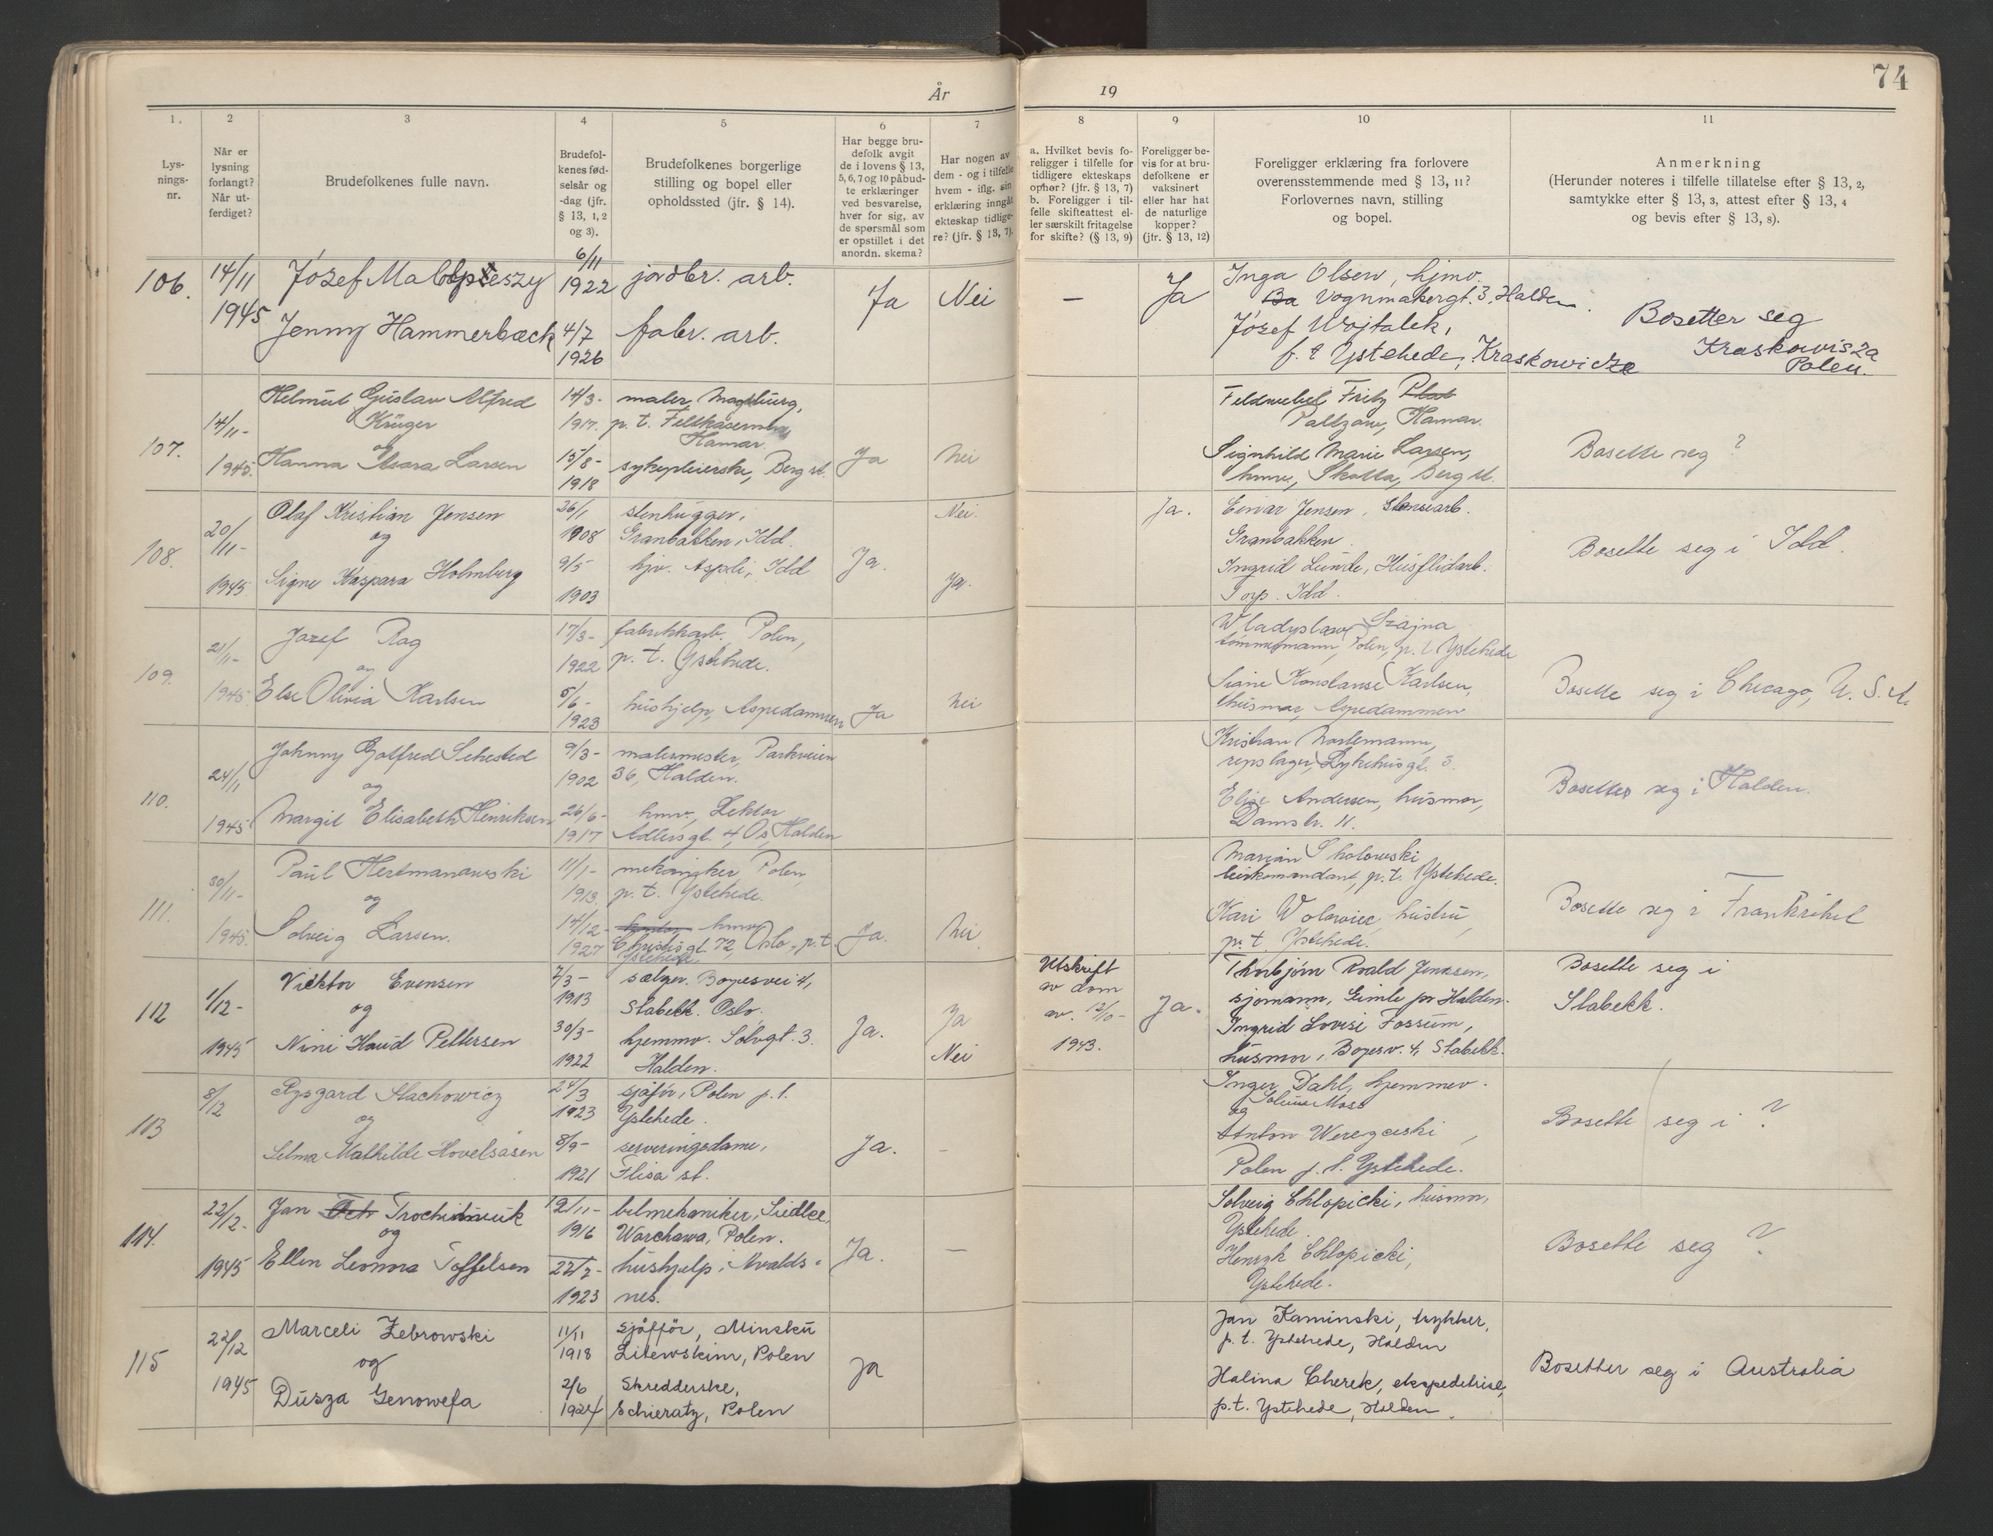 År
19
74
1.
2
3
4
5
6
7
8
9
10
11
Lys-
nings-
nr.
Når er
lysning
forlangt?
Når ut-
ferdiget?
Brudefolkenes fulle navn.
Brudefol-
kenes fød-
selsår og
-dag (jfr.
§ 13, 1, 2
og 3).
Brudefolkenes borgerlige
stilling og bopel eller
opholdssted (jfr. § 14).
Har begge bru-
defolk avgit
de i lovens § 13,
5, 6, 7 og 10 påbud-
te erklæringer
ved besvarelse,
hver for sig, av
de spørsmål som
er opstillet i det
anordn. skema?
Har nogen av
dem - og i tilfelle
hvem - iflg. sin
erklæring inngåt
ekteskap tidlige-
re? (jfr. § 13, 7).
a. Hvilket bevis fo-
religger i tilfelle for
tidligere ekteskaps
ophør? (jfr. § 13, 7)
b. Foreligger i til-
felle skifteattest el-
ler særskilt fritagelse
for skifte? (§ 13, 9)
Foreligger be-
vis for at bru-
defolkene er
vaksinert
eller har hat
de naturlige
kopper?
(jfr. § 13, 12)
Foreligger erklæring fra forlovere
overensstemmende med § 13, 11?
Forlovernes navn, stilling
og bopel.
Anmerkning
(Herunder noteres i tilfelle tillatelse efter § 13, 2,
samtykke efter § 13, 3, attest efter § 13, 4
og bevis efter § 13, 8).
106.
14/11
1945
Józef
Jenny Hammerbæck
6/11
1922
4/7
1926
jordbr. arb.
fabr. arb.
Ja
Nei
—
Ja
Inga Olsen, hjmv.
Vognmakergt. 3, Halden.
Józef Wojtalek,
p. t. Ystehede, Kraskowicze
Bosetter seg
Kraskowisza
Polen.
107.
14/11-
1945.
Helmut Gustav Alfred
Krüger
og
Hanna Larsen
14/3-
1917.
15/8-
1918
maler, Magdburg,
p. t. Feltkaserne
Hamar.
sykepleierske, Berg st.
Ja
Nei
Feldwebel Fritz
Hamar.
Signhild Marie Larsen,
hmv, Skolla, Berg st.
Bosette seg ?
108.
20/11-
1945.
Olaf Kristian Jensen
og
Signe Kaspara Holmberg
26/1
1908
9/5
1903
stenhugger,
Granbakken, Idd.
hjv. Aspeli, Idd
Ja.
Nei.
Ja.
Ja.
Einar Jensen, Stensarb.
Granbakken.
Ingrid Lunde, Husflidarb.
Torp. Idd.
Bosette seg i Idd.
109.
21/11-
1945.
Jozef Rag
og
Else Olivia Karlsen
17/3-
1922
5/6-
1923
fabrikkarb., Polen,
p. t. Ystehede.
hushjelp, Aspedammen
Ja
Nei
Wladyslaw Szajna
tømmermann, Polen, p. t. Ystehede
Signe Konstanse Karlsen,
husmor, Aspedammen
Bosette seg i Chicago, U. S. A.
110.
24/11
1945
Johnny Gotfred Sehested
og
Margit Elisabeth Henriksen
9/3-
1902
26/6-
1917
malermester, Parkveien
36, Halden.
hmv, Lektor
Adlersgt. 4, Os, Halden
Kristian
repslager, Sykehusgt. 3.
Elise Andersen, husmor,
Damstr. 11.
Bosetter seg i Halden.
111.
30/11-
1945.
Paul Hertmanawski
og
Solveig Larsen.
11/1-
1913.
14/12-
1927
mekaniker, Polen,
p. t. Ystehede.
hmv
72, Oslo - p. t.
Ystehede
Ja.
Nei
Marian Skolowski
leirkomandant, p. t. Ystehede.
Kari Wolowiec, hustru,
p. t. Ystehede.
Bosette seg i Frankrikel
112
1/12-
1945
Vicktor Evensen
og
Nini Haud Pettersen
7/3-
1913
30/3-
1922
sælger. Boyesvei 4,
Stabekk. Oslo,
hjemmv. Solvgt. 3.
Halden.
Ja.
Ja
Nei
Utskrift
av dom
av. 12/10-
1943.
Ja.
Thorbjørn Roald Jensen,
sjømann, Gimle pr Halden.
Ingrid Lovise Fossum,
husmor, Boyesv. 4, Stabekk.
Bosette seg i
Stabekk.
113
8/12
Rysgard Stachowicz
og
Selma Mathilde Hovelsåsen
24/3
1923
8/9-
1921
sjåfør, Polen p. t.
Ystehede.
serveringsdame,
Flisa st.
Ja.
-
Inger Dahl, hjemmev.
og
Moss
Anton Weregceski,
Polen p. t. Ystehede.
Bosette seg i ?
114.
22/12-
1945
Jan
og
Ellen Leonora Toffelsen
12/11-
1916
22/7-
1923
bilmekaniker, Siedlce,
Warchawa, Polen.
hushjelp, Avalds-
nes.
Ja.
—
Solveig Chlopicki, husmor,
Ystehede.
Henryk Chlopicki,
Ystehede.
Bosette seg ?
115
22/12
1945
Marceli Zebrowski
og
Dusza Genowefa
11/11
1918
2/6
1924
sjåffør, Minsku
Litewskim, Polen
Skredderske,
Schieratz, Polen
Ja
Jan Kaminski, trykker,
p. t. Ystehede, Halden
Halina Cherek, ekspeditrise,
p. t. Ystehede, Halden.
Bosetter seg i Australia